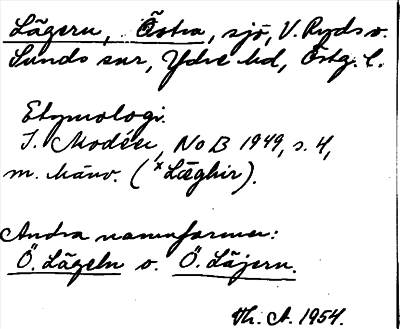 Lägern, Östra, sjö, V. Ryds o.
Sunds snr, Ydre hd, Östg. l.
Etymologi.
I. Modéer, NoB 1949, s. 4,
m. hänv. (*Læghir).
Andra namnformer:
Ö. Lägeln o. Ö. Läjern.
Th. A. 1954.